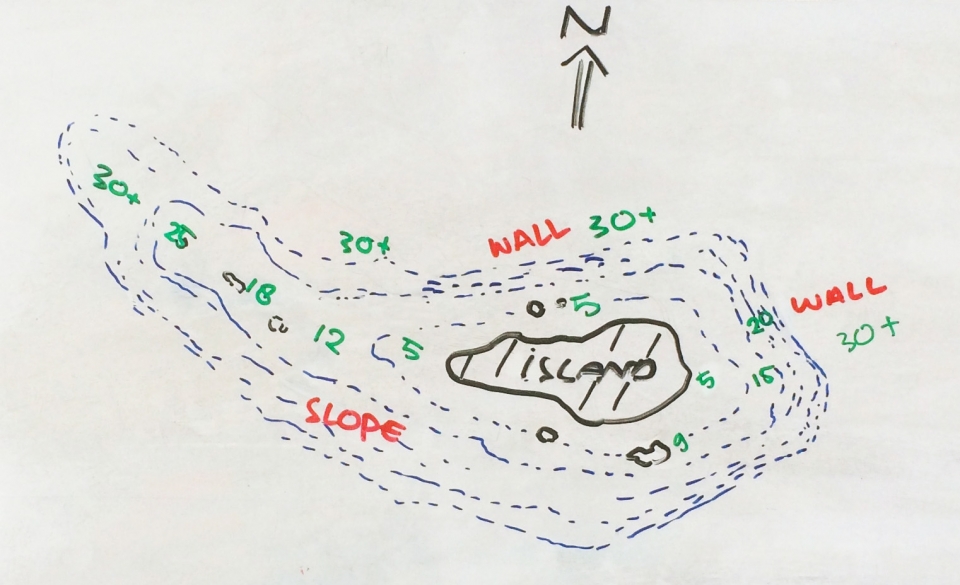 N
30+
25
30+
WALL 30+
WALL
30+
18
5
20
12
5
ISLAND
5
15
SLOPE
9